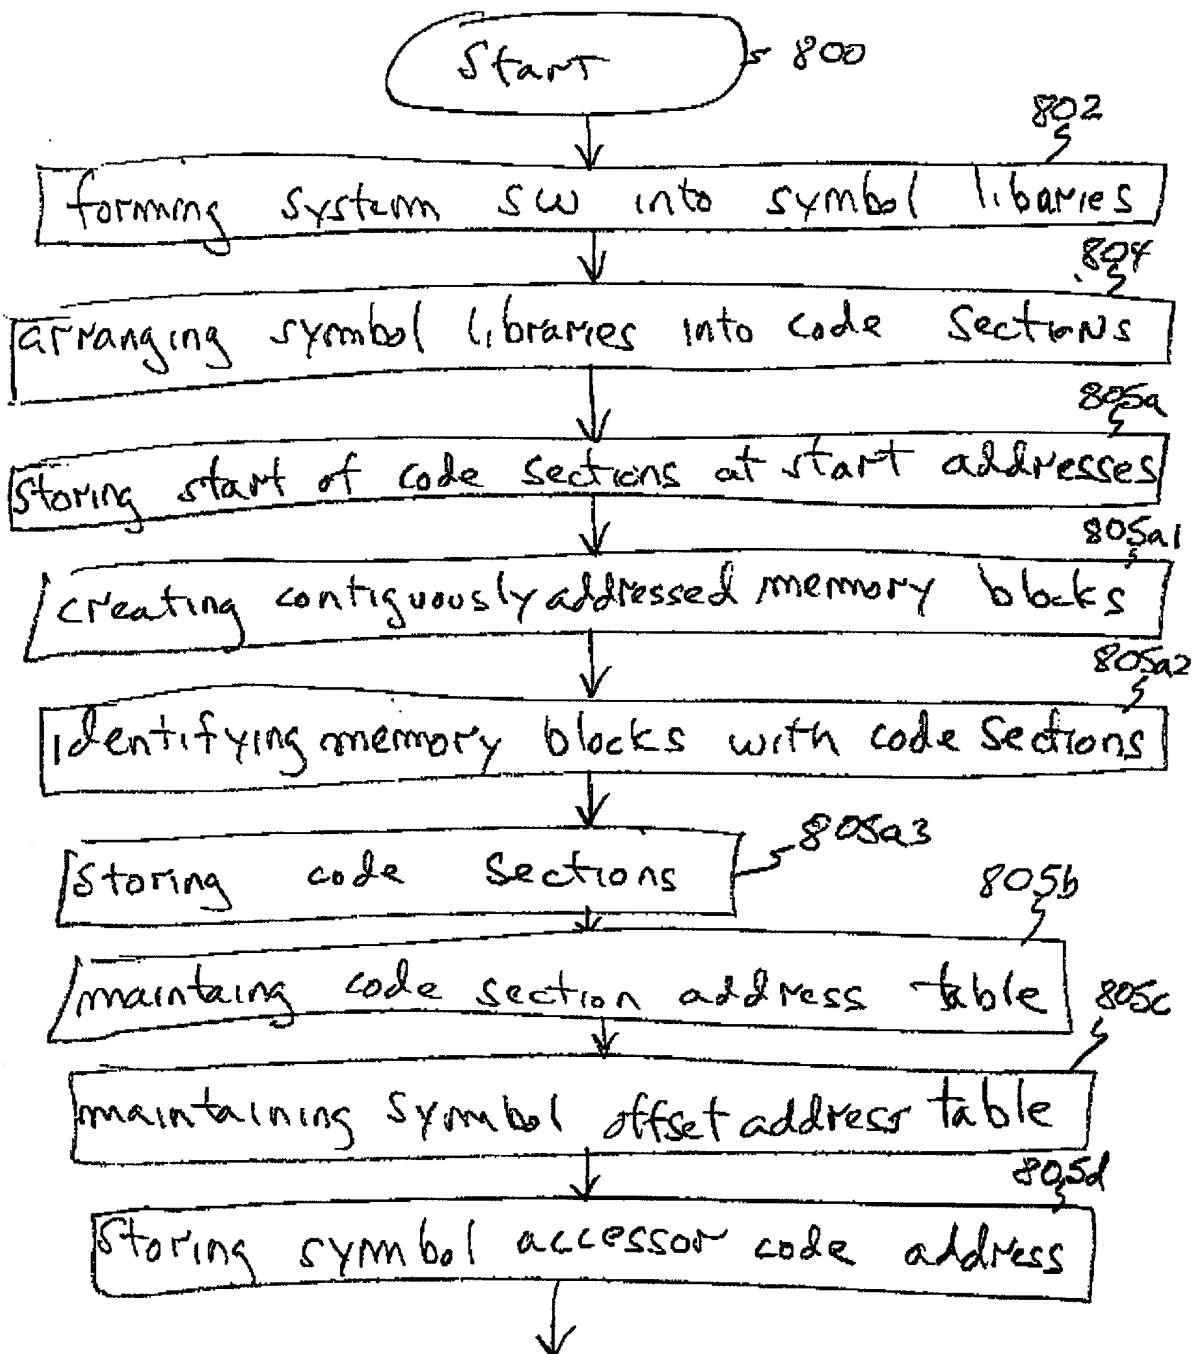 Start 800
802
forming system SW into symbol libaries
804
arranging symbol libraries into code Sections
805a
Storing start of code sections at start addresses
805a1
creating contiguously addressed memory blocks
805a2
identifying memory blocks with code Sections
805a3
Storing code Sections
805b
maintaing code section address table
805c
maintaining symbol offset address table
805d
Storing symbol accessor code address